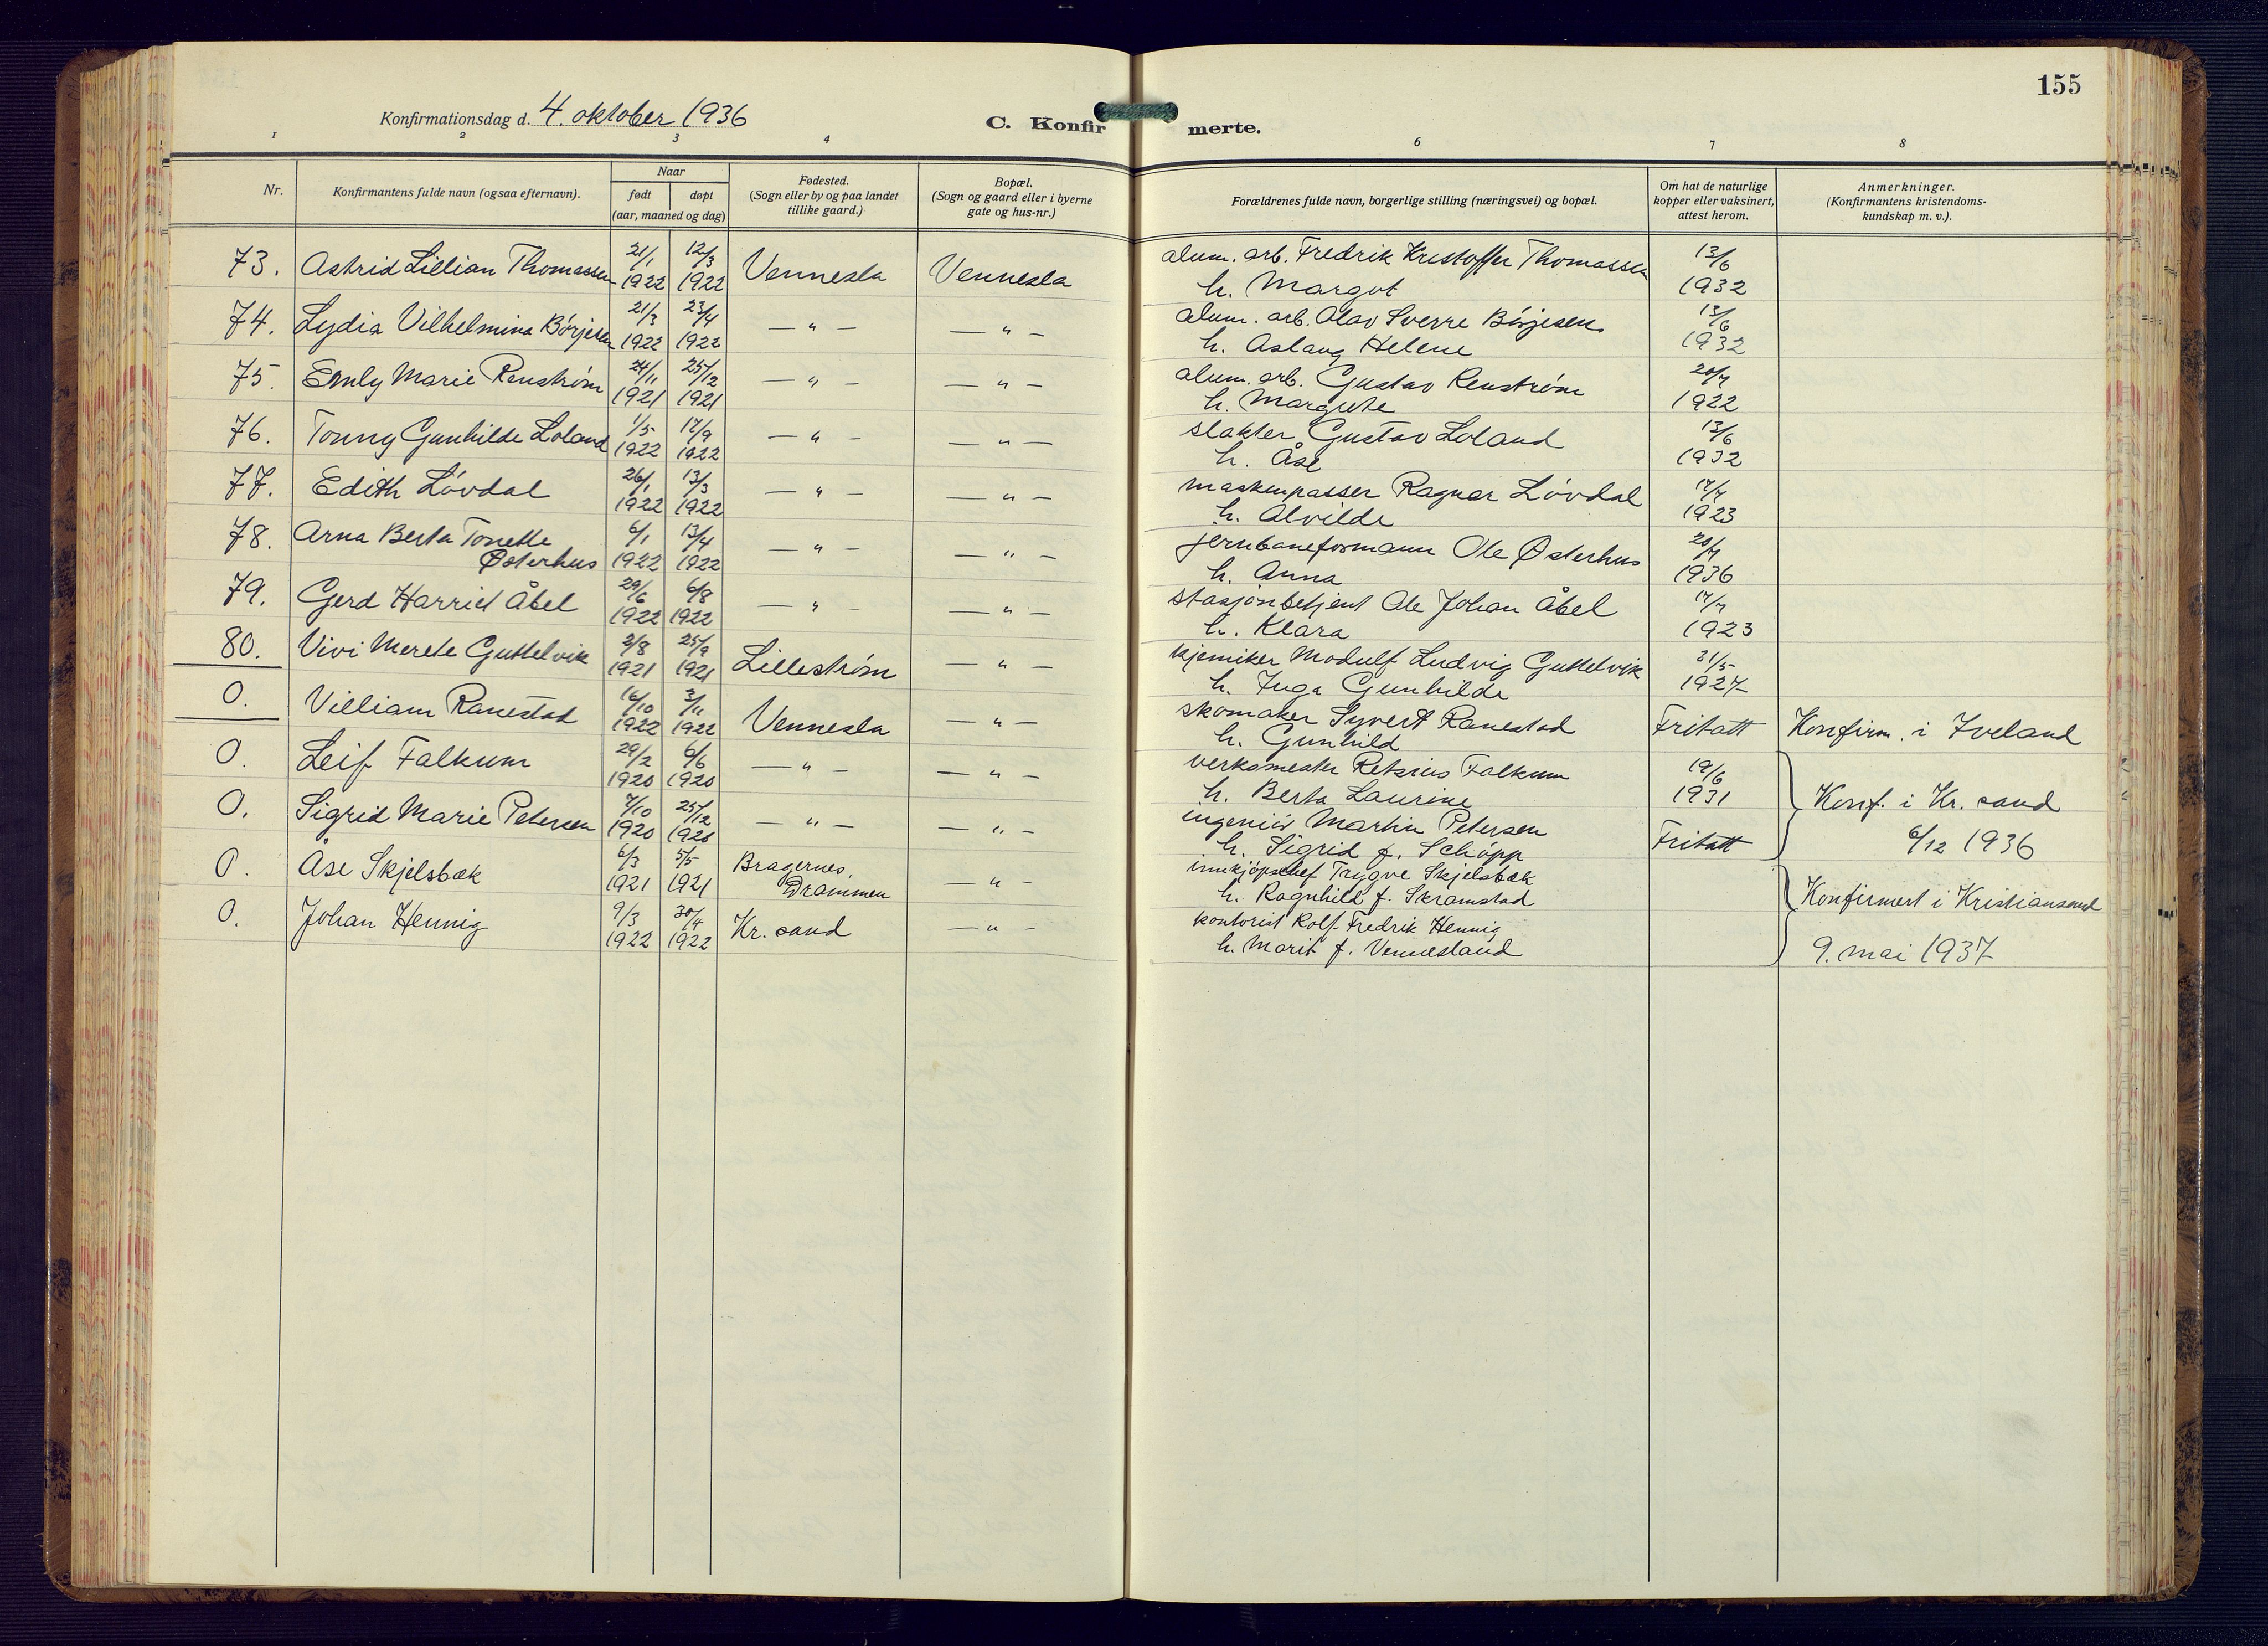 155
Konfirmationsdag d. 4. oktober 1936
C. Konfirmerte.
1 2 3 4 6 7 8
Nr.
Konfirmantens fulde navn (ogsaa efternavn).
Naar
født døpt
(aar, maaned og dag)
Fødested.
(Sogn eller by og paa landet
tillike gaard.)
Bopæl.
(Sogn og gaard eller i byerne
gate og hus-nr.)
Forældrenes fulde navn, borgerlige stilling (næringsvei) og bopæl.
Om hat de naturlige
kopper eller vaksinert,
attest herom.
Anmerkninger.
(Konfirmantens kristendoms-
kundskap m. v.).
73. Astrid Lillian Thomassen 21/1 1922 12/3 1922 Vennesla Vennesla alum. arb. Fredrik Kristoffer Thomassen 13/6
h. Margot 1932
74. Lydia Vilhelmina Börjesen 21/3 1922 23/4 1922 — " — — " — alum. arb. Olav Sverre Börjesen 13/6
h. Aslaug Helene 1932
75. Emly Marie Renström 24/11 1921 25/12 1921 — " — — " — alum. arb. Gustav Renström 20/7
h. Margrete 1922
76. Tonny Gunhilde Loland 1/5 1922 17/9 1922 — " — — " — slakter Gustav Loland 13/6
h. Åse 1932
77. Edith Lövdal 26/1 1922 13/3 1922 — " — — " — maskinpasser Ragnar Lövdal 17/7
h. Alvilde 1923
78. Arna Berta Tonette 6/1 13/4 — " — — " — jernbaneformann Ole Østerhus 20/7
Østerhus 1922 1922 h. Anna 1936
79. Gerd Harriet Åbel 29/6 1922 6/8 1922 — " — — " — stasjonbetjent Ole Johan Åbel 17/7
h. Klara 1923
80. Vivi Merete Guttelvik 3/8 1921 25/9 1921 Lilleström — " — kjemiker Modulf Ludvig Guttelvik 31/5
h. Inga Gunhilde 1927
0. Villiam Ranestad 16/10 1922 3/11 1922 Vennesla — " — skomaker Syvert Ranestad Fritatt Konfirm. i Iveland
h. Gunhild
0. Leif Falkum 29/2 1920 6/6 1920 — " — — " — verksmester Retsius Falkum 19/6
h. Berta Laurine 1931 Konf. i Kr. sand
0. Sigrid Marie Petersen 7/10 1920 25/12 1920 — " — — " — ingeniör Martin Petersen Fritatt 6/12 1936
h. Sigrid f. Schöpp
0. Åse Skjelsbæk 6/3 1921 5/5 1921 Bragernes, — " — innkjöpschef Trygve Skjelsbæk
Drammen h. Ragnhild f. Skramstad Konfirmert i Kristiansand
0. Johan Hennig 9/3 1922 30/4 1922 Kr. sand — " — kontorist Rolf Fredrik Hennig
h. Marit f. Vennesland 9. mai 1937